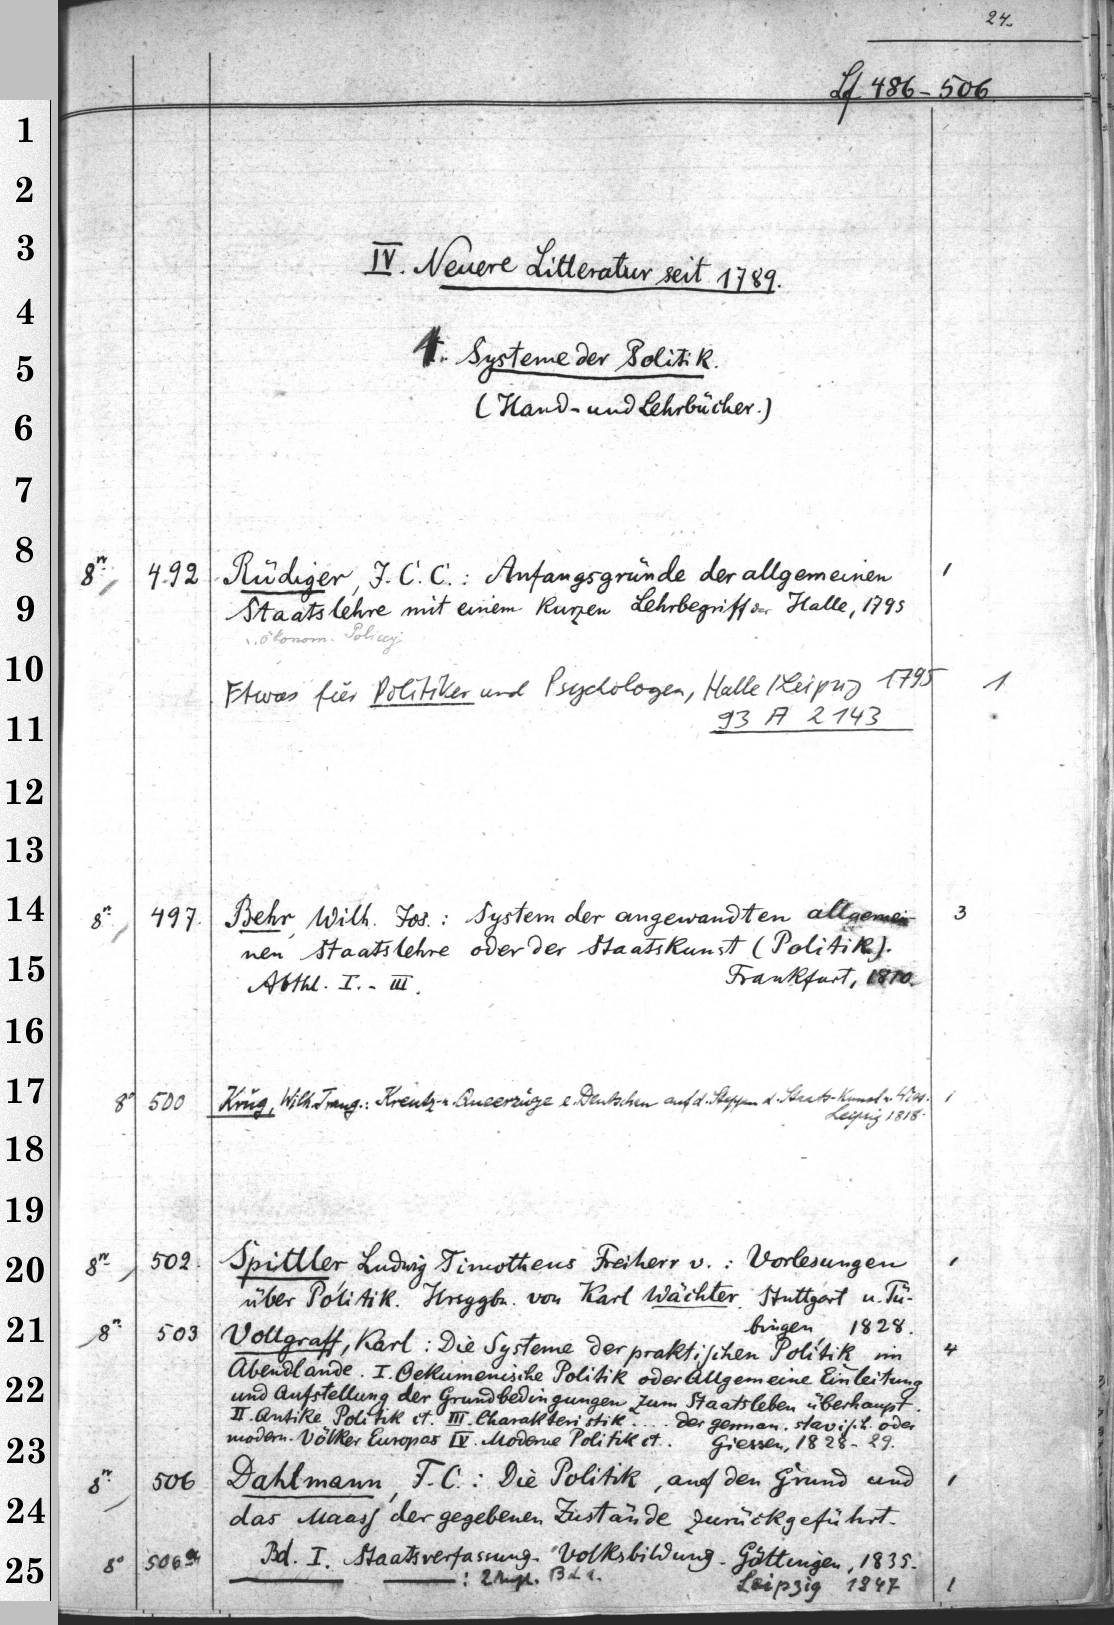 24.
Lf 486-506
IV. Neuere Litteratur seit 1789.
1. Systeme der Politik.
(Hand- und Lehrbücher.)
8° 492 Rüdiger, J. C. C.: Anfangsgründe der allgemeinen 1
Staatslehre mit einem kurzen Lehrbegriff der Halle, 1795
ökonom. Policey
Etwas für Politiker und Psychologen, Halle/Leipzig 1795 1
93 A 2143
8° 497. Behr, Wilh. Jos.: System der angewandten allgemei- 3
nen Staatslehre oder der Staatskunst (Politik).
Abthl. I. - III. Frankfurt, 1810.
8° 500 Krug, Wilh. Traug.: Kreutz- u. Queerzüge e. Deutschen auf d. Steppen d. Staats-Kunst u. Wiss. 1
Leipzig 1818.
8° 502. Spittler Ludwig Timotheus Freiherr v.: Vorlesungen 1
über Politik. Hrsggbn. von Karl Wächter. Stuttgart u. Tü-
bingen 1828.
8° 503 Vollgraff, Karl: Die Systeme der praktischen Politik im 4
Abendlande. I. Oekumenische Politik oder Allgemeine Einleitung
und Aufstellung der Grundbedingungen zum Staatsleben überhaupt.
II. Antike Politik et. III. Charakteristik .... der german. slavisch. oder
modern. Völker Europas IV. Moderne Politik et. Giessen, 1828-29.
8° 506 Dahlmann, F. C.: Die Politik, auf den Grund und 1
das Maass der gegebenen Zustände zurückgeführt.
Bd. I. Staatsverfassung. Volksbildung. Göttingen, 1835.
8° 506a : 2 Aufl. Bd 1. Leipzig 1847 1
1
2
3
4
5
6
7
8
9
10
11
12
13
14
15
16
17
18
19
20
21
22
23
24
25